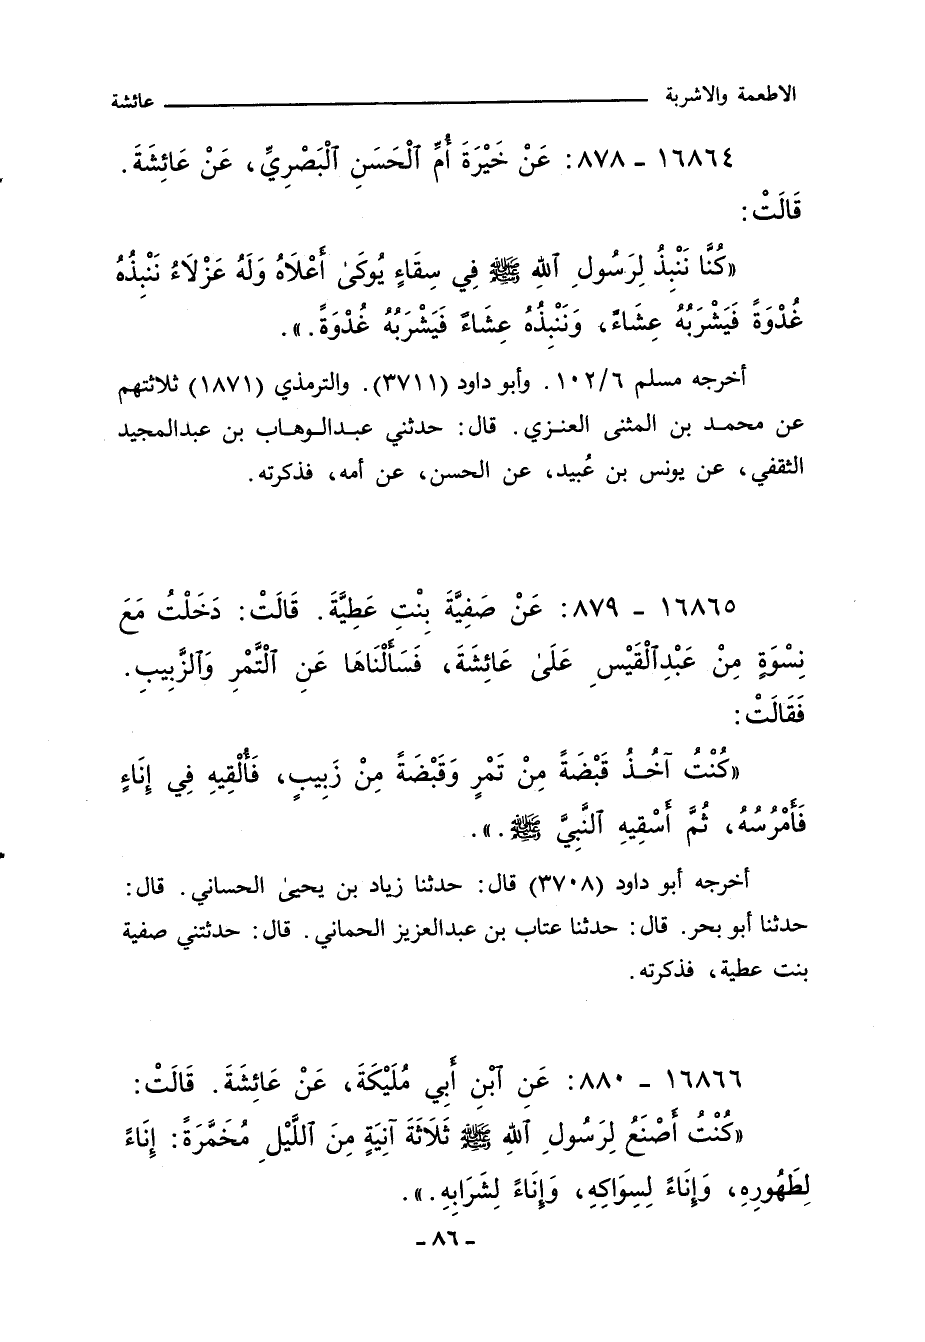 الاطعمة والاشربة ـــــــــــــــــــــــــ عائشة
١٦٨٦٤ - ٨٧٨: عَنْ خَيْرَةَ أُمِّ ٱلْحَسَنِ ٱلْبَصْرِيِّ، عَنْ عَائِشَةَ.
قَالَتْ:
«كُنَّا نَنْبِذُ لِرَسُولِ ٱللهِ ﷺ فِي سِقَاءٍ يُوكَىٰ أَعْلَاهُ وَلَهُ عَزْلَاءُ نَنْبِذُهُ
غُدْوَةً فَيَشْرَبُهُ عِشَاءً، وَنَنْبِذُهُ عِشَاءً فَيَشْرَبُهُ غُدْوَةً.».
أخرجه مسلم ١٠٢/٦. وأبو داود (٣٧١١). والترمذي (١٨٧١) ثلاثتهم
عن محمد بن المثنى العنزي. قال: حدثني عبدالوهاب بن عبدالمجيد
الثقفي، عن يونس بن عُبيد، عن الحسن، عن أمه، فذكرته.
١٦٨٦٥ - ٨٧٩: عَنْ صَفِيَّةَ بِنْتِ عَطِيَّةَ. قَالَتْ: دَخَلْتُ مَعَ
نِسْوَةٍ مِنْ عَبْدِٱلْقَيْسِ عَلَىٰ عَائِشَةَ، فَسَأَلْنَاهَا عَنِ ٱلْتَّمْرِ وَٱلزَّبِيبِ.
فَقَالَتْ:
«كُنْتُ آخُذُ قَبْضَةً مِنْ تَمْرٍ وَقَبْضَةً مِنْ زَبِيبٍ، فَأُلْقِيهِ فِي إِنَاءٍ
فَأَمْرُسُهُ، ثُمَّ أَسْقِيهِ ٱلنَّبِيَّ ﷺ.».
أخرجه أبو داود (٣٧٠٨) قال: حدثنا زياد بن يحيىٰ الحساني. قال:
حدثنا أبو بحر. قال: حدثنا عتاب بن عبدالعزيز الحماني. قال: حدثتني صفية
بنت عطية، فذكرته.
١٦٨٦٦ - ٨٨٠: عَنِ ٱبْنِ أَبِي مُلَيْكَةَ، عَنْ عَائِشَةَ. قَالَتْ:
«كُنْتُ أَصْنَعُ لِرَسُولِ ٱللهِ ﷺ ثَلَاثَةَ آنِيَةٍ مِنَ اللَّيْلِ مُخَمَّرَةً: إِنَاءً
لِطَهُورِهِ، وَإِنَاءً لِسِوَاكِهِ، وَإِنَاءً لِشَرَابِهِ.».
- ٨٦ -